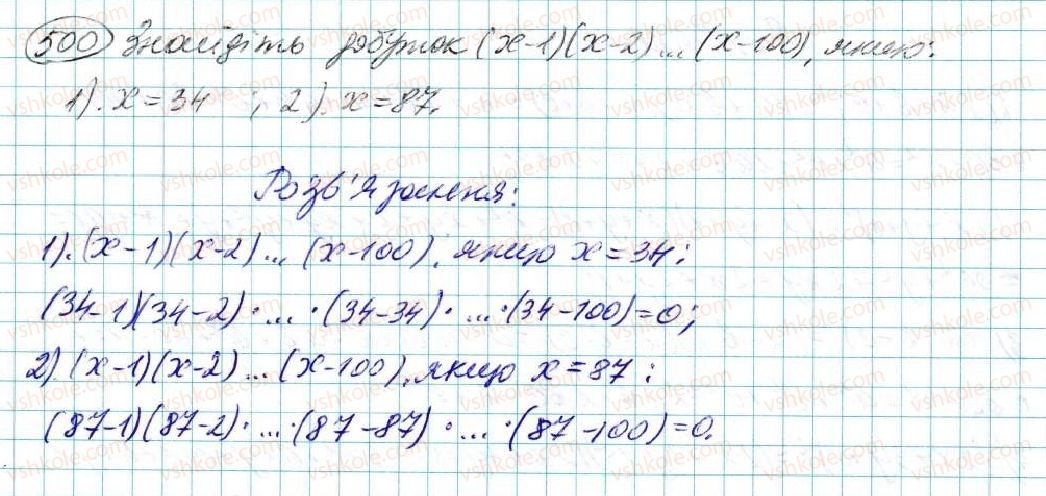 500 Знайдіть добуток (x-1)(x-2)...(x-100), якщо:
1). x=34 ; 2). x=87.
Розв'язання:
1). (x-1)(x-2)...(x-100), якщо x=34;
(34-1)(34-2)·...·(34-34)·...·(34-100)=0;
2) (x-1)(x-2)...(x-100), якщо x=87;
(87-1)(87-2)·...·(87-87)·...·(87-100)=0.